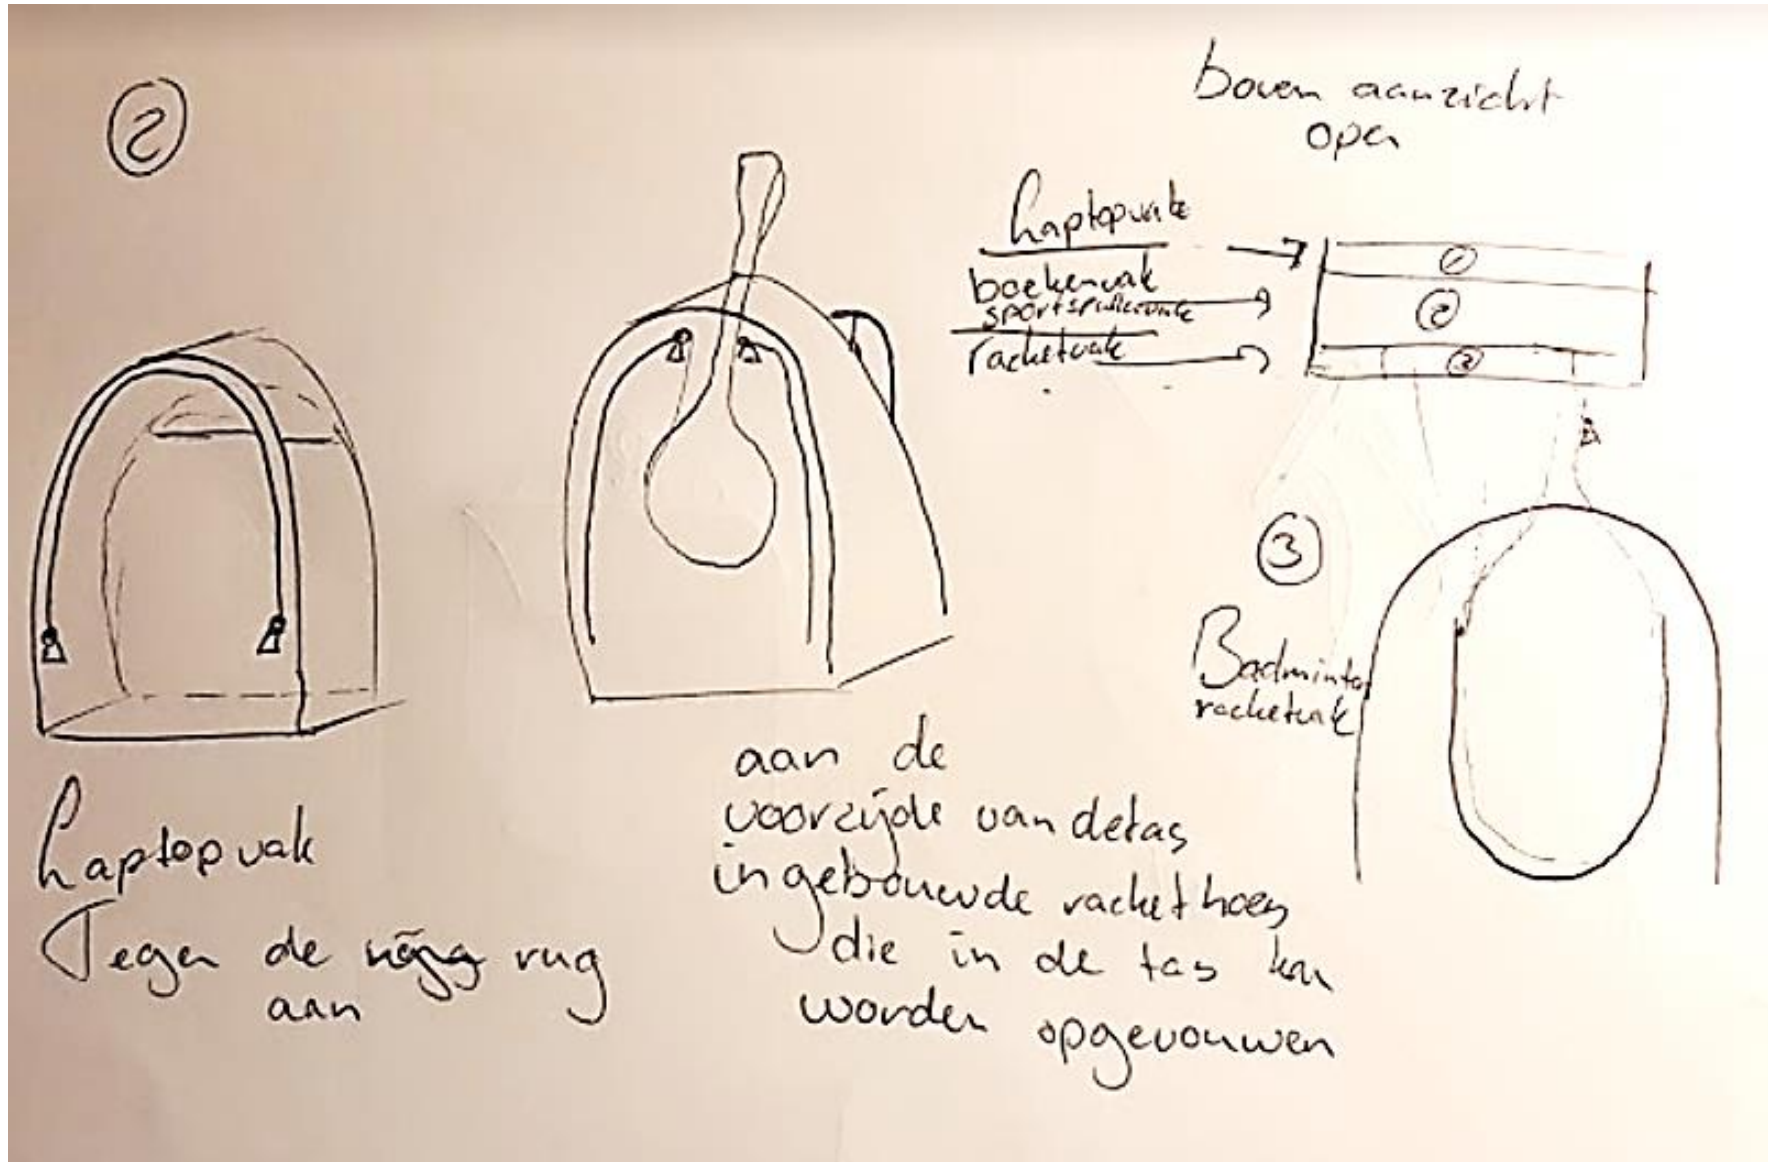 2
boven aanzicht
open
Laptopvak
boekenvak
sportspullenvak
racketvak
1
2
3
3
Badminton
racketvak
Laptopvak
Tegen de rug
aan
aan de
voorzijde van de tas
ingebouwde rackethoes
die in de tas kan
worden opgevouwen